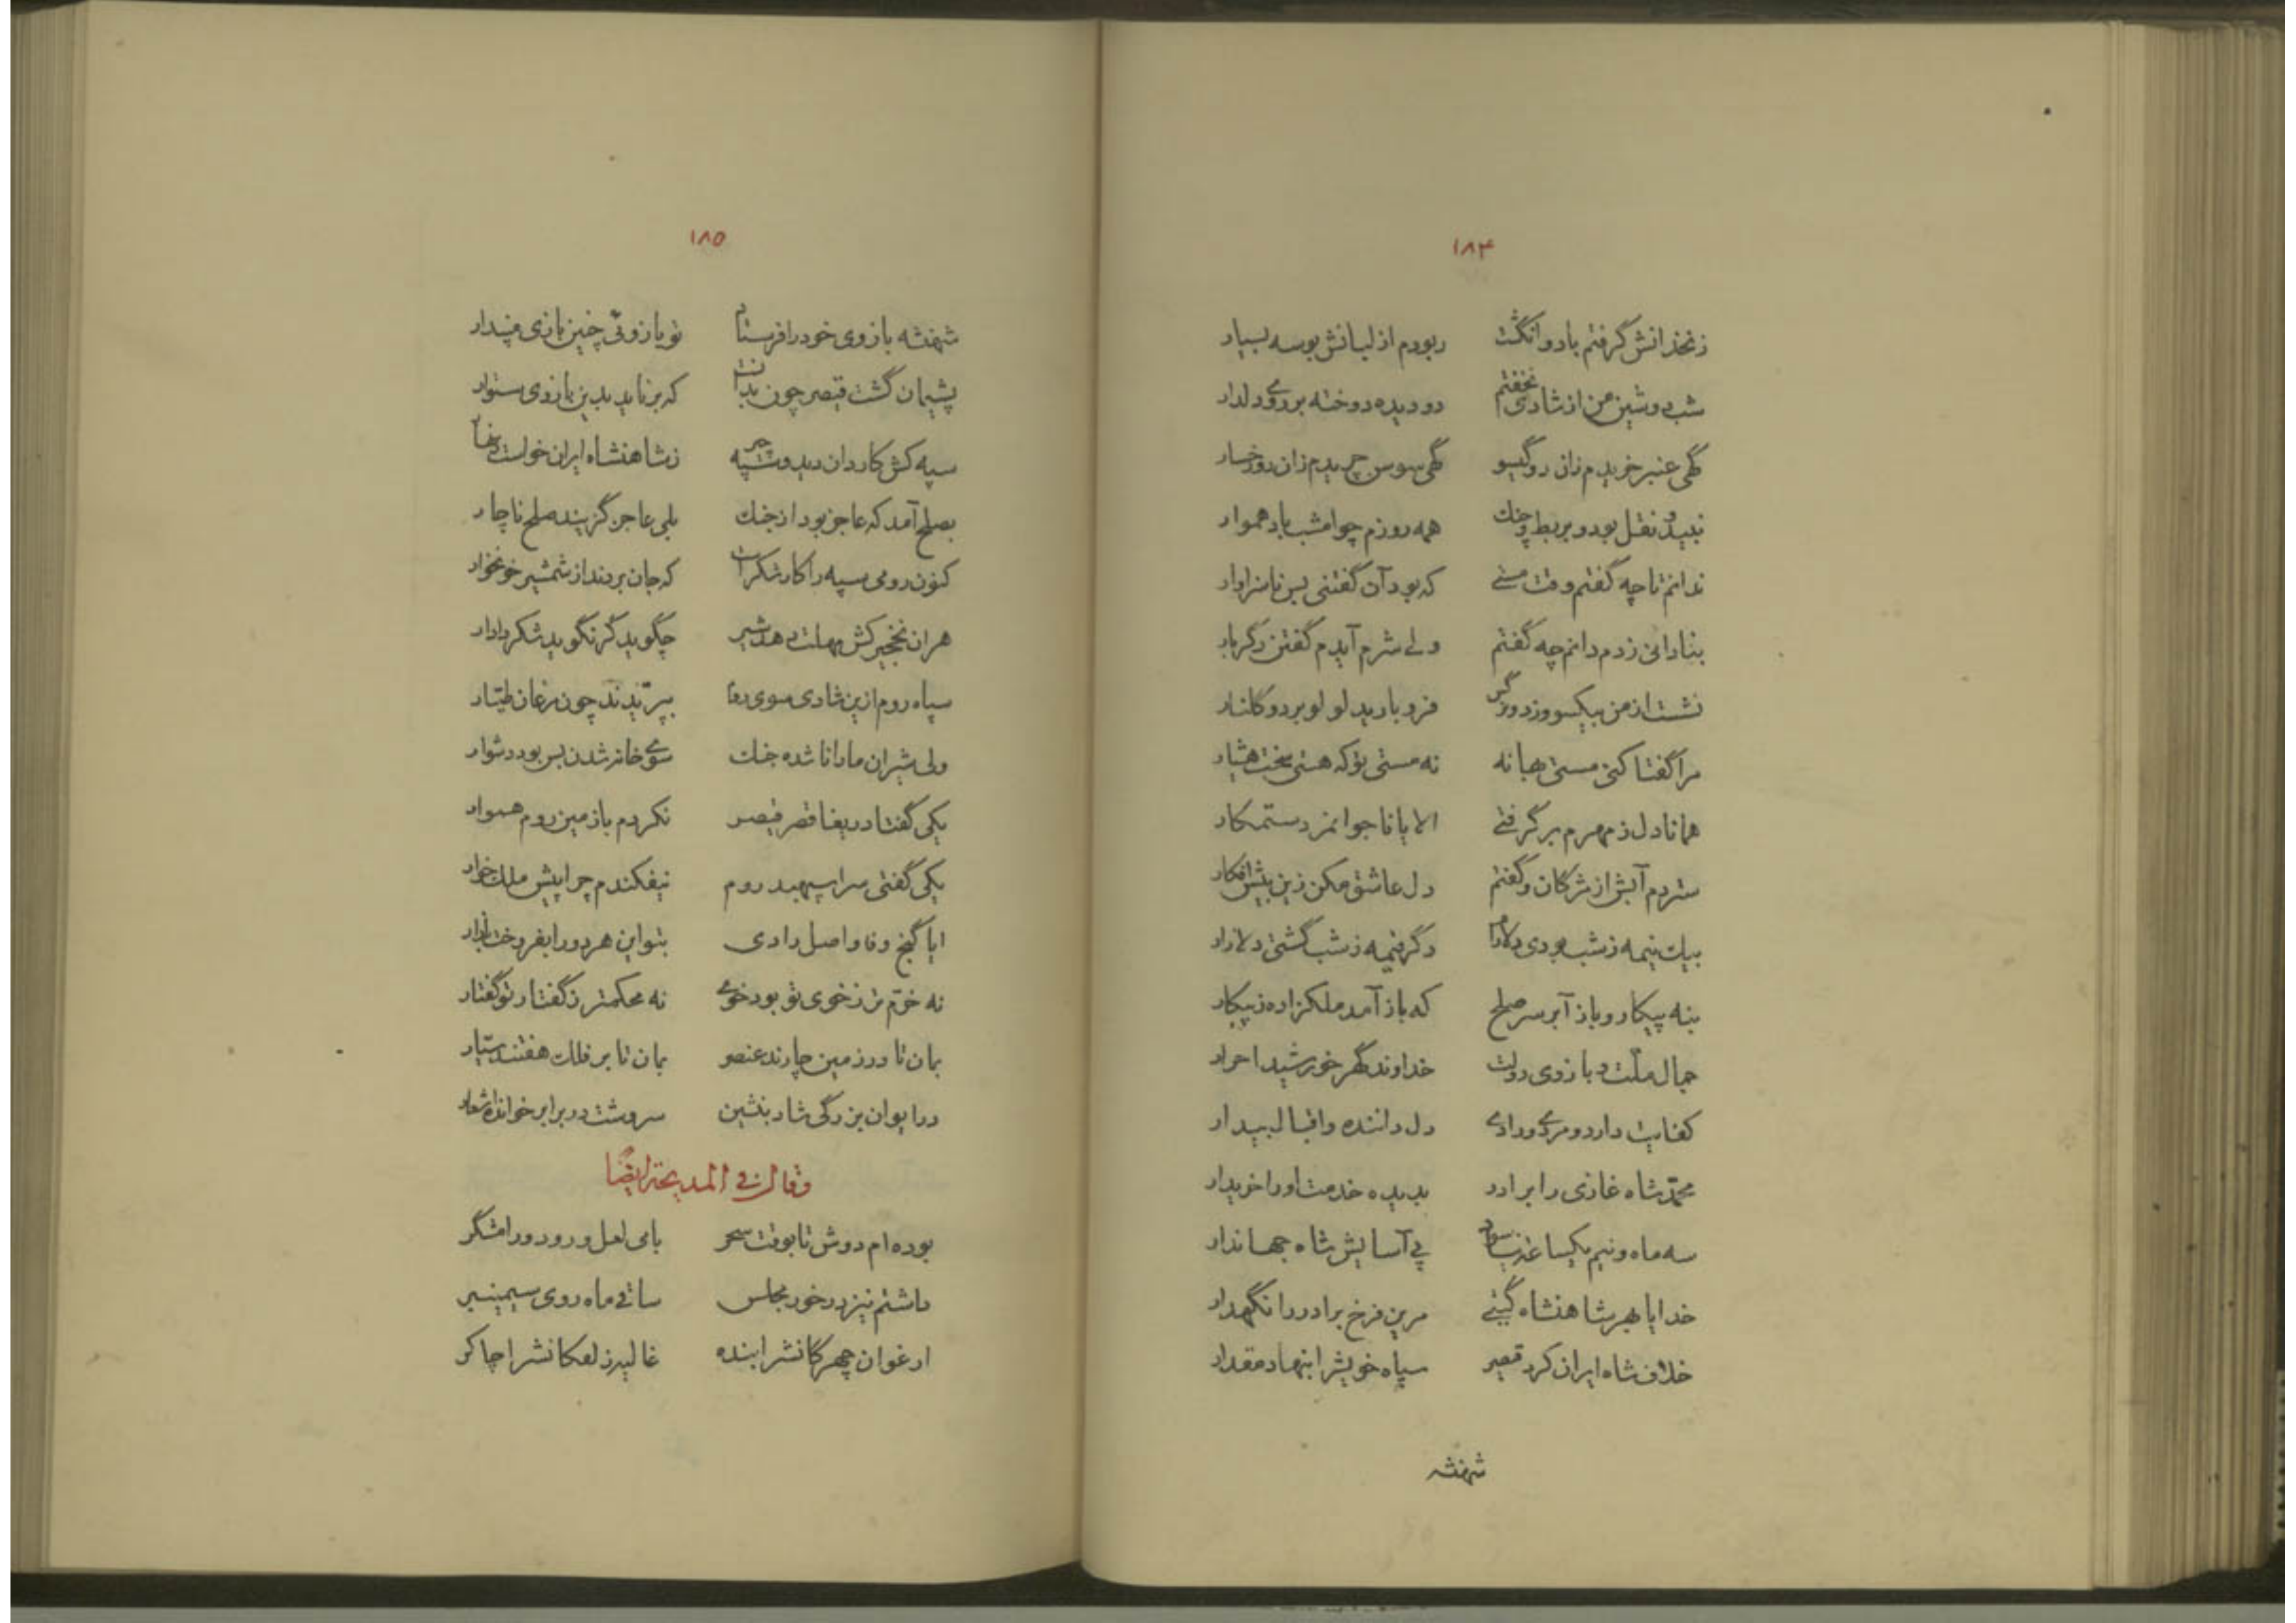 ۱۸۴
زنخدانش گرفتم با دو انگشت ربودم از لبانش بوسه بسیار
شب دوشین من از شادی نخفتم دو دیده دوخته بر روی دلدار
گهی عنبر خریدم زان دو گیسو گهی سوسن چریدم زان دو رخسار
نبید و نقل بود و بربط و چنك همه روزم چو امشب باد هموار
ندانم تا چه گفتم وقت مستی که بود آن گفتنی بس ناسزاوار
بنادانی زدم دانم چه گفتم ولی شرم آیدم گفتن دگر بار
نشست از من بیکسو وز دو نرگس فرو بارید لولو بر دو گلنار
مرا گفتا کنی مستی بهانه نه مستی تو که هستی سخت هشیار
همانا دل ز مهرم برگرفتی الا یا ناجوانمرد ستمکار
ستردم آبش از مژگان و گفتم دل عاشق مکن زین بیش افکار
بیك نیمه ز شب بودی دلارام دگر نیمه ز شب گشتی دلازار
بنه پیکار و باز آ بر سر صلح که باز آمد ملکزاده ز پیکار
جمال ملّت و بازوی دولت خداوند گهر خورشید احرار
کفایت دارد و مردی و رادی دل داننده و اقبال بیدار
محمّد شاه غازی را برادر بدیده خدمت او را خریدار
سه ماه و نیم یکساعت نیاسود پی آسایش شاه جهاندار
خدایا بهر شاهنشاه گیتی مرین فرخ برادر را نگهدار
خلاف شاه ایران کرد قیصر سپاه خویش را بنهاد مقدار
شهنشه
۱۸۵
شهنشه بازوی خود را فرستاد تو یازوئی چنین بازی مپندار
پشیمان گشت قیصر چون بدانست که بر ناید بدین بازوی ستوار
سپه کش کاردان دید و سپه چیر ز شاهنشاه ایران خواست زنهار
بصلح آمد که عاجز بود از جنك بلی عاجز گزیند صلح ناچار
کنون رومی سپه را کار شکر است که جان بردند از شمشیر خونخوار
هر ان نخجیر کش مهلت دهد شیر چگوید گر نگوید شکر دادار
سپاه روم ازین شادی سوی روم بپرّیدند چون مرغان طیّار
ولی شیران ما را ناشده جنك سوی خانه شدن بس بود دشوار
یکی گفتا دریغا قصر قیصر نکردم باز مین روم هموار
یکی گفتی سر اسپهبد روم نیفکندم چرا پیش ملك خوار
ایا گنج وفا و اصل رادی بتو این هر دو را بفروخت بازار
نه خرّم تر ز خوی تو بود خوی نه محکمتر ز گفتار تو گفتار
بمان تا در زمین چارند عنصر بمان تا بر فلك هفتند سیّار
در ایوان بزرگی شاد بنشین سروشت در برابر خوانده اشعار
وقال فی المدیحة ایضًا
بوده ام دوش تا بوقت سحر با می لعل و رود و رامشگر
داشتم نیز در خور مجلس ساقی ماه روی سیمینبر
ارغوان چهرکانش را بنده غالیه زلفکانش را چاکر